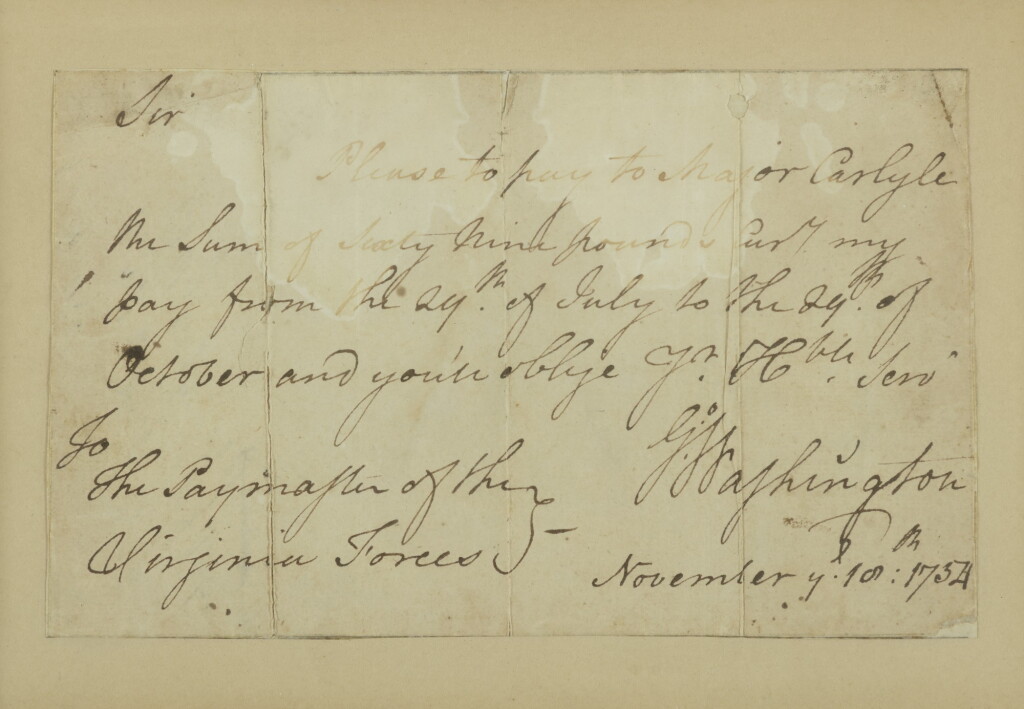 Sir
Please to pay to Major Carlyle
the Sum of Sixty Nine pounds Curt. my
pay from the 29th. of July to the 29th. of
October and you'll oblige Yr. Hble. Serv
Go: Washington
To
the Paymaster of the
Virginia Forces
November ye. 18th: 1754